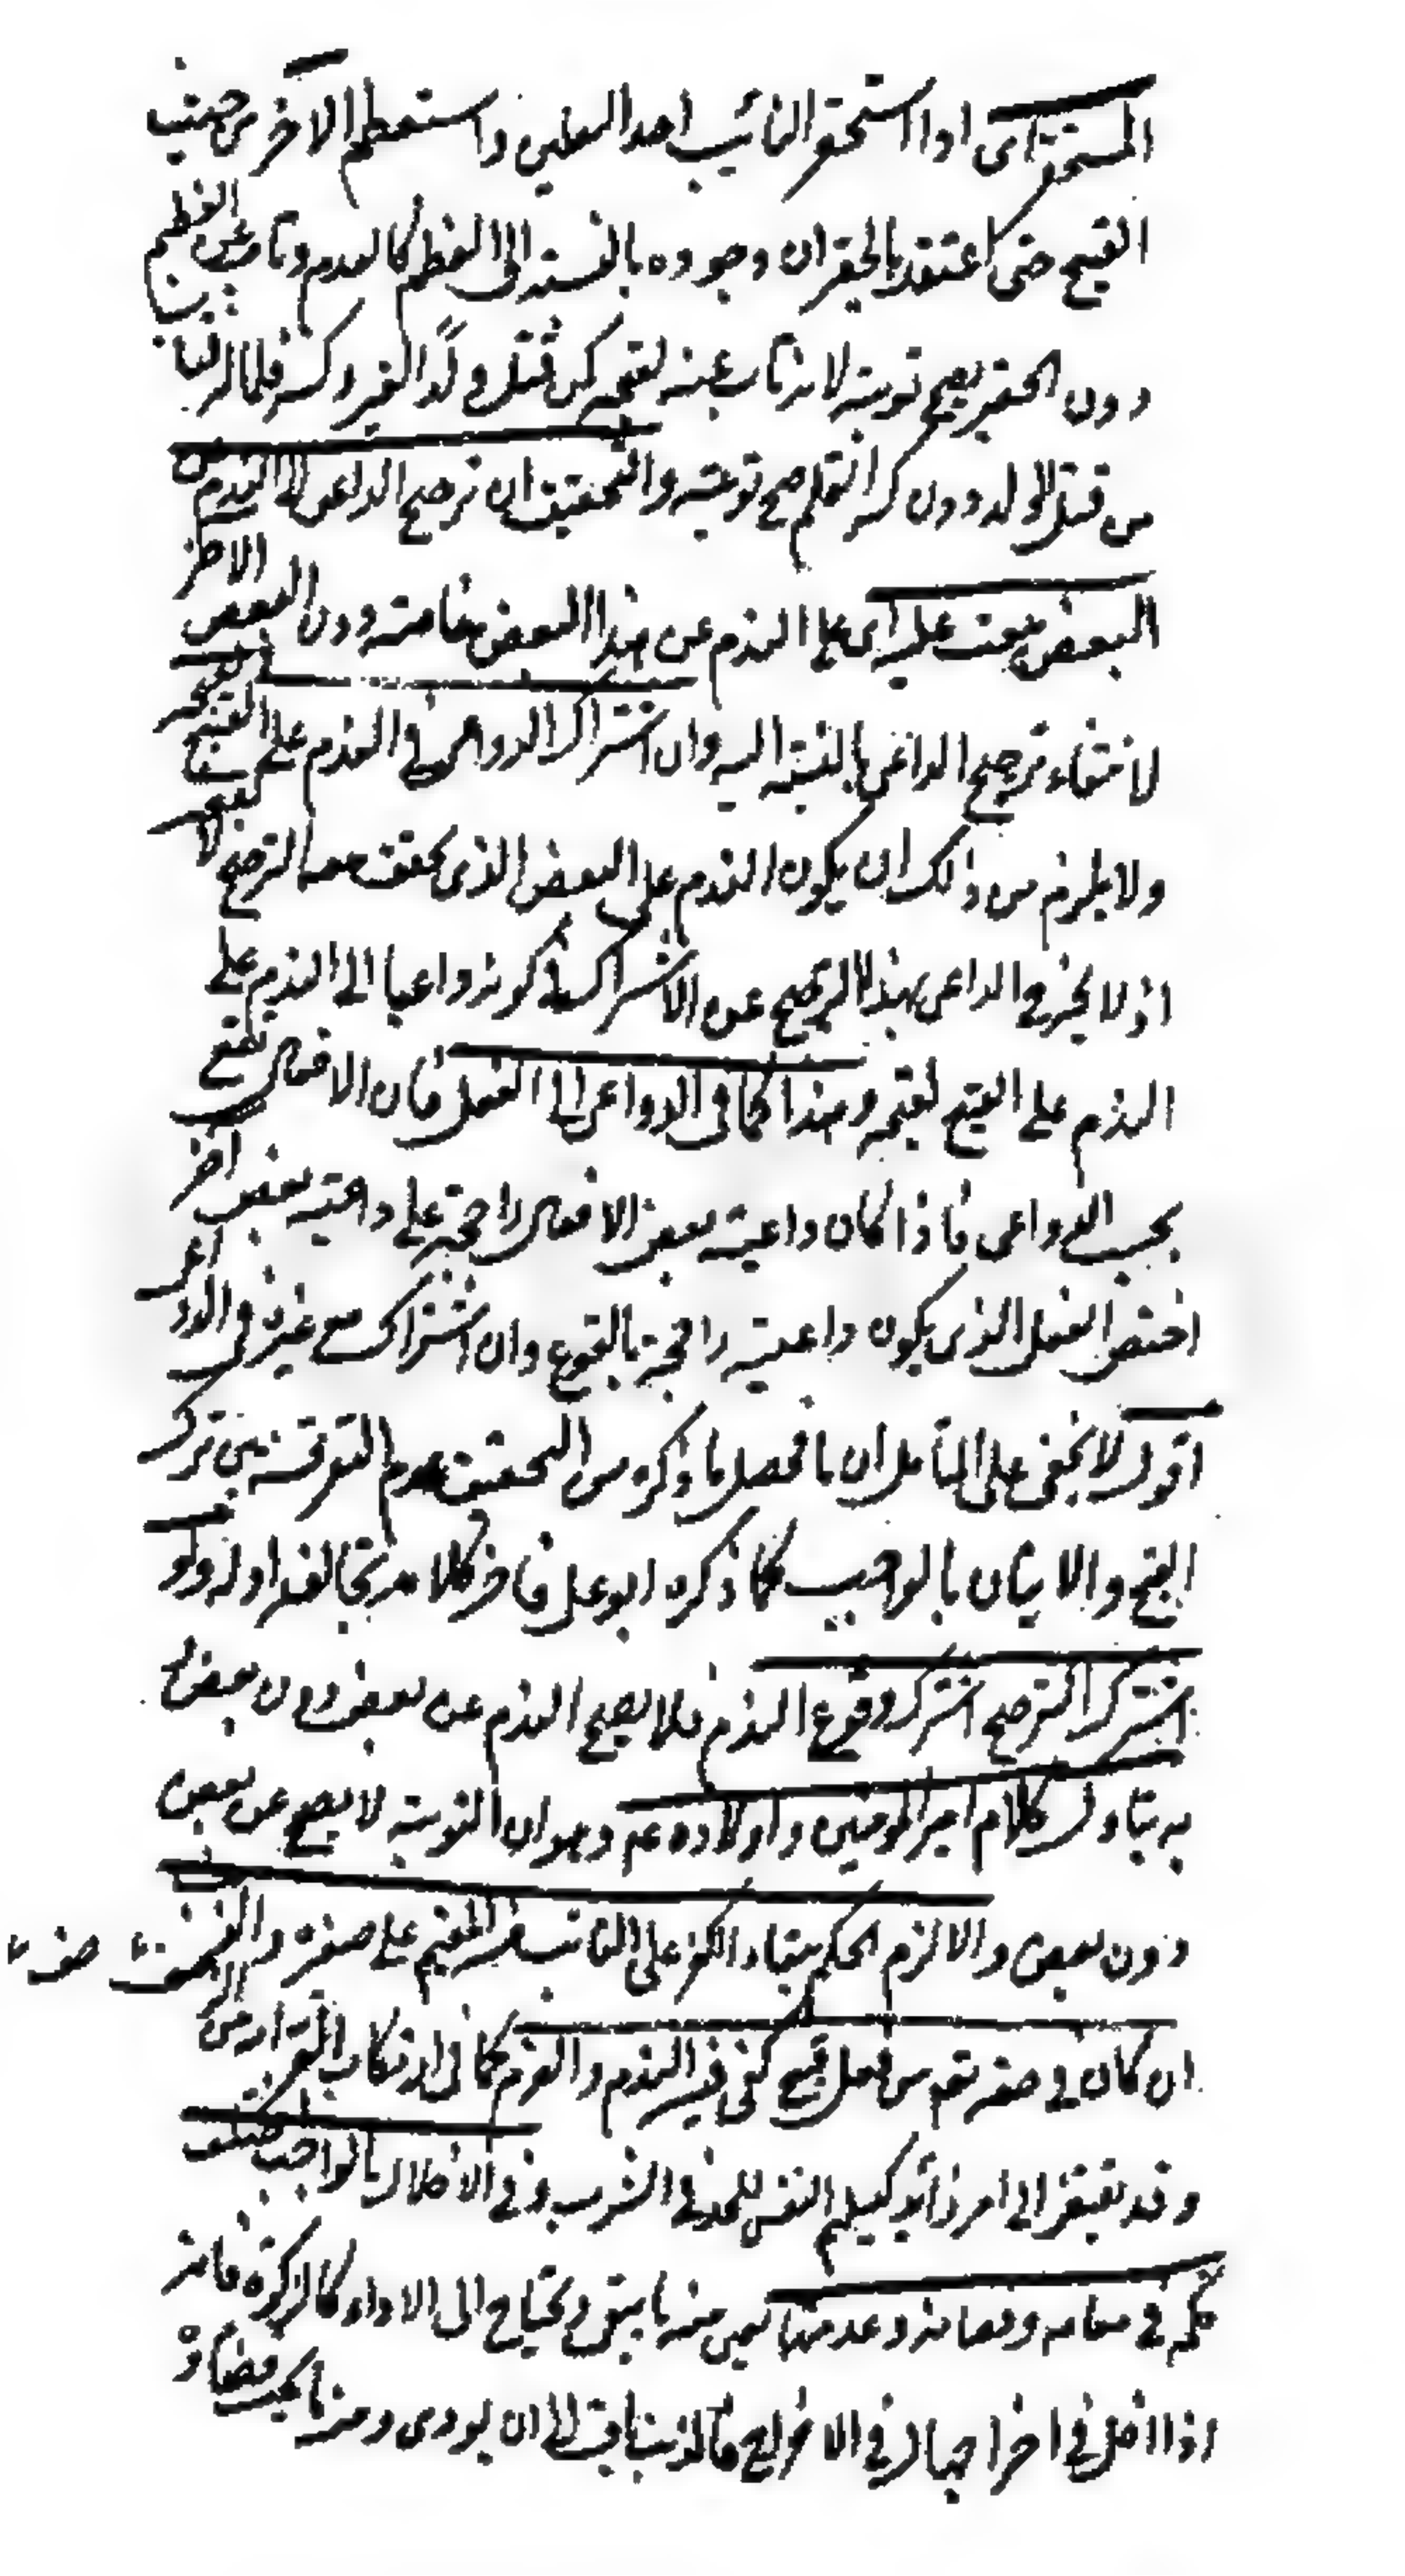 المستحق اى اذا استحق التائب احد الفعلين واستعظم الآخر من حيث
القبيح حتى اعتقد بالحقير ان وجوده بالنسبة الى العظيم كالعدم وتاب عن العظيم
دون الحقير يصح توبته لانه تاب عنه لقبحه كمن قتل ولد الغير وكسر قلما له تاب
من قتل الولد دون كسر القلم صح توبته والتحقيق ان ترجيح الداعى الى الندم عن
البعض يبعث عليه اى على الندم عن هذا البعض خاصة دون البعض الآخر
لانتفاء ترجيح الداعى بالنسبة اليه وان اشتراك الدواعى فى الندم على القبيح لقبحه
ولا يلزم من ذلك ان يكون الندم على البعض الذى تحقق معه الترجيح لا لقبحه
اذ لا يخرج الداعى بهذا الترجيح عن الاشتراك فى كونه داعيا الى الندم على
الندم على القبيح لقبحه وهذا كما فى الدواعى الى الفعل فان الافعال تقع
بحسب الدواعى فاذا كان داعية بعض الافعال راجحة على داعية بعض آخر
اختص الفعل الذى يكون داعيته راجحة بالوقوع وان اشتراك مع غيره فى الدواعى
اقول لا يخفى على المتأمل ان ما فحصل ما ذكره من التحقيق عدم التفرقة بين ترك
القبح والاتيان بالواجب كما ذكره ابو على فاخر كلامه يخالف اوله ولو
اشترك الترجيح اشترك وقوع الندم فلا يصح الندم عن بعض دون بعض
به يتاول كلام امير المومنين واولاده عم وهو ان التوبة لا يصح عن بعض
دون بعض والا لزم الحكم ببقاء الكفر على التائب منه المقيم على صغيرة والذنب
ان كان فى حقه تعه من فعل قبيح كفى فيه الندم والعزم كما فى ارتكاب الفرار من
وقد يفتقر الى امر زائد كتسليم النفس للحد فى الشرب وفى الاخلال بالواجب اختلف
حكمه فى بقائه وقضائه وعدمهما فمن منه ما يبقى ويحتاج الى الاداء كالزكوة فانه
اذا اخل فى اخراجها فى الاخراج فالذنب باقية الى ان يودى ومنه ما يجب قضاؤه